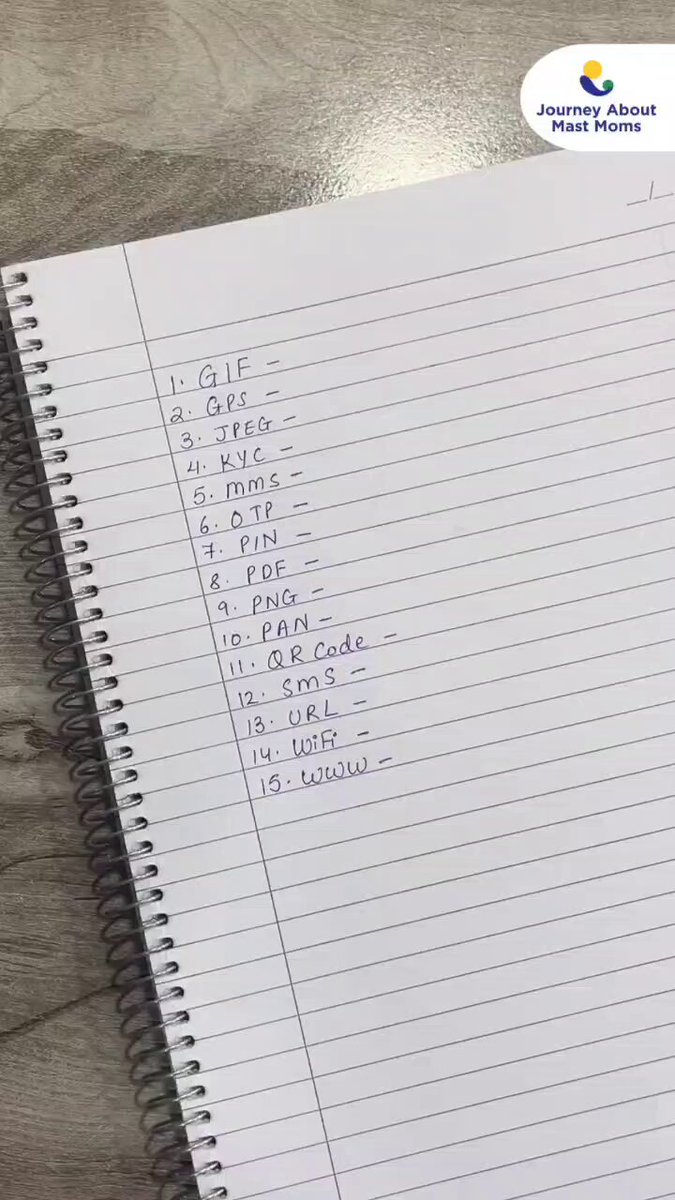 Journey About
Mast Moms
_/_
1. GIF -
2. GPS -
3. JPEG -
4. KYC -
5. MMS -
6. OTP -
7. PIN -
8. PDF -
9. PNG -
10. PAN -
11. QR Code -
12. SMS -
13. URL -
14. WiFi -
15. WWW -